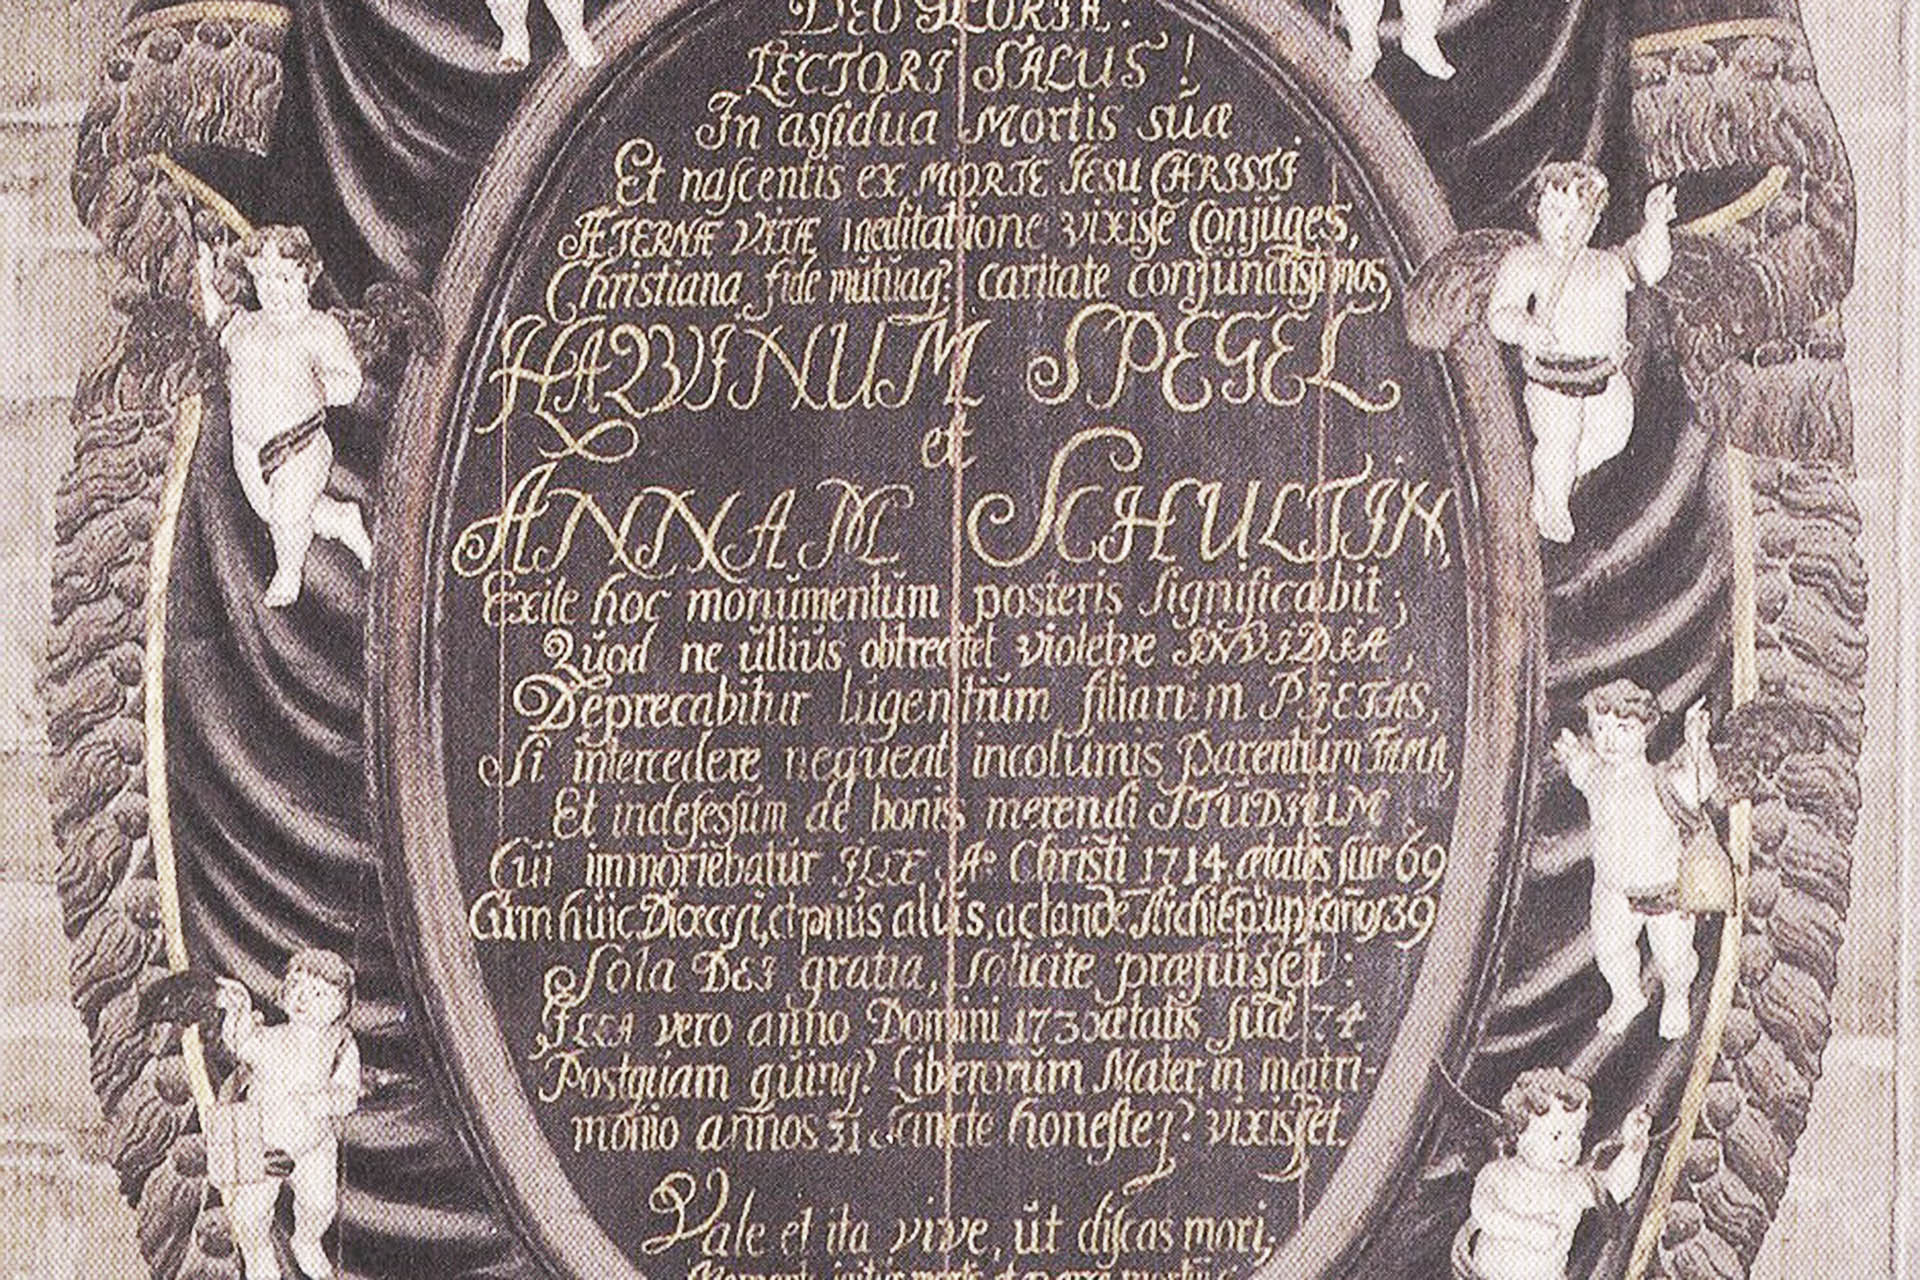 DEO GLORIA:
LECTORI SALUS!
In assidua Mortis suæ
Et nascentis ex MORTE JESU CHRISTI
ÆTERNÆ VITÆ meditatione vixisse Conjuges,
Christiana fide mutuaq; caritate conjunctissimos,
HAQVINUM SPEGEL
et
ANNAM SCHULTIN,
Exile hoc monumentum posteris significabit;
Quod ne ullius obtrectet violetve INVIDIA,
Deprecabitur lugentium filiarum PIETAS,
Si intercedere nequeat incolumis Parentum FAMA,
Et indefessum de bonis merendi STUDIUM
Cui immoriebatur ILLE A: Christi 1714 ætatis suæ 69
Cum huic Diœcesi, et prius aliis, ac tandē Archiep: Ups: años 39
Sola DEI gratia, solicite præfuisset:
ILLA vero anno Domini ætatis suæ 74
Postquam quinq; Liberorum Mater, in matri-
monio annos 31 sancte honesteq; vixisset.
Vale et ita vive, ut discas mori;